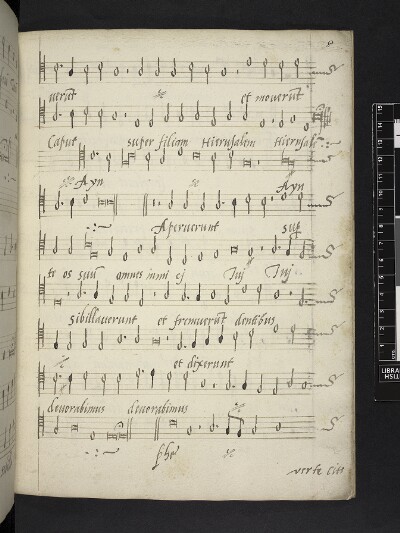 uerāt et mouerūt
Caput super filiam Hierusalem Hierusalē
Ayn Ayn
Aperuerunt sup
te os suū omnes inimi ej Tuj Tuj
Sibillauerunt et fremuerūt dentibus
et dixerunt
deuorabimus deuorabimus
phe
verte cito
LIBRAR